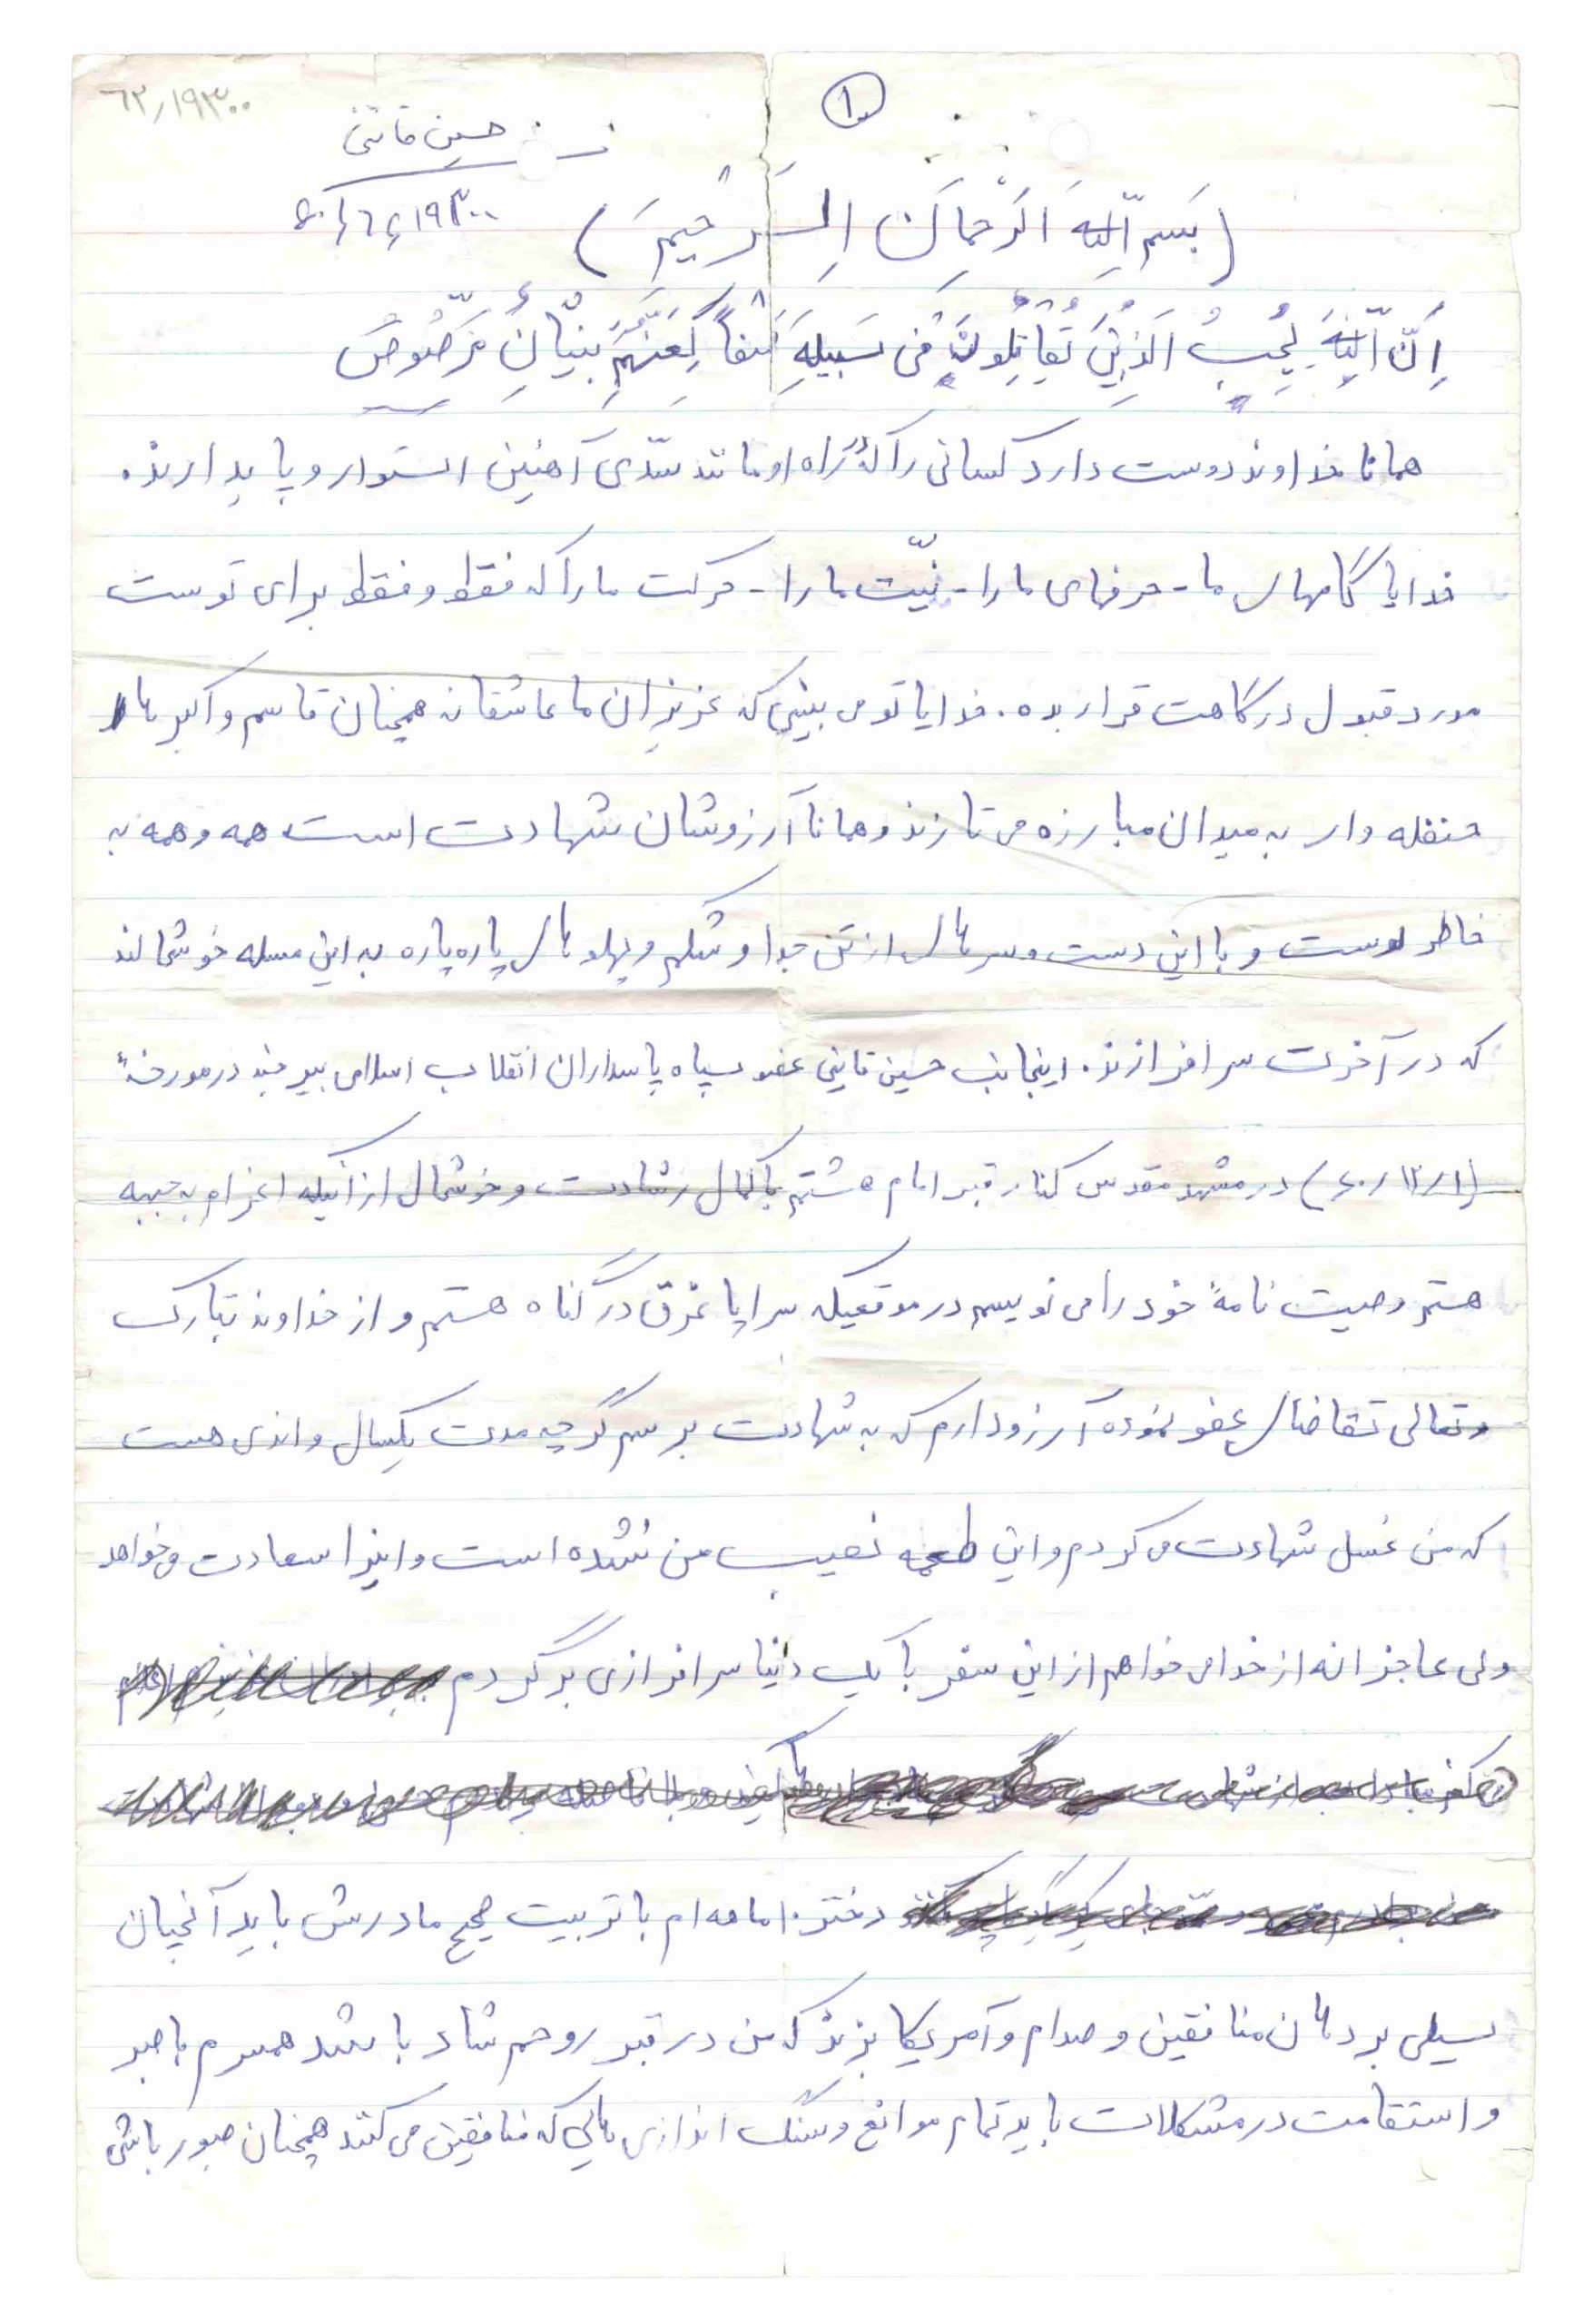 ۶۲/۱۹۳۰۰
۱
حسین قائنی
(بسم الله الرحمان الرحیم)
اِنَّ اللهَ یُحِبُّ الَذینَ یُقاتِلُونَ فی سَبیلِهِ صَفاً کَعَنهُم بُنیانٌ مَرصُوصٌ
همانا خداوند دوست دارد کسانی را که در راه او مانند سدّی آهنین استوار و پایدارند.
خدایا گامهای ما - حرفهای ما را - نیّت ما را - حرکت ما را که فقط و فقط برای توست
مورد قبول درگاهت قرار بده. خدایا تو می بینی که عزیزان ما عاشقانه همچنان قاسم و اکبرها
حنظله وار به میدان مبارزه می تازند و همانا آرزوشان شهادت است همه و همه به
خاطر توست و با این دست و سرهای از تن جدا و شکم و پهلوهای پاره پاره به این مسله خوشحالند
که در آخرت سرافرازند. اینجانب حسین قاینی عضو سپاه پاسداران انقلاب اسلامی بیرجند در مورخهٔ
(۶۰/۱۲/۱) در مشهد مقدس کنار قبر امام هشتم با کمال رشادت و خوشحال از آنیکه اعزام به جبهه
هستم وصیت نامهٔ خود را می نویسم در موقعیکه سراپا غرق در گناه هستم و از خداوند تبارک
و تعالی تقاضای عفو نموده آرزو دارم که به شهادت برسم گرچه مدت یکسال و اندی هست
که من غسل شهادت می کردم و این طعمه نصیب من نشده است و اینرا سعادت می خواهد
ولی عاجزانه از خدا می خواهم از این سفر با یک دنیا سرافرازی برگردم
دختر. امامه ام با تربیت صحیح مادرش باید آنچنان
سیلی بر دهان منافقین و صدام و آمریکا بزند که من در قبر روحم شاد باشد همسرم با صبر
و استقامت در مشکلات باید تمام موانع و سنگ اندازی هایی که منافقین می کنند همچنان صبور باشی